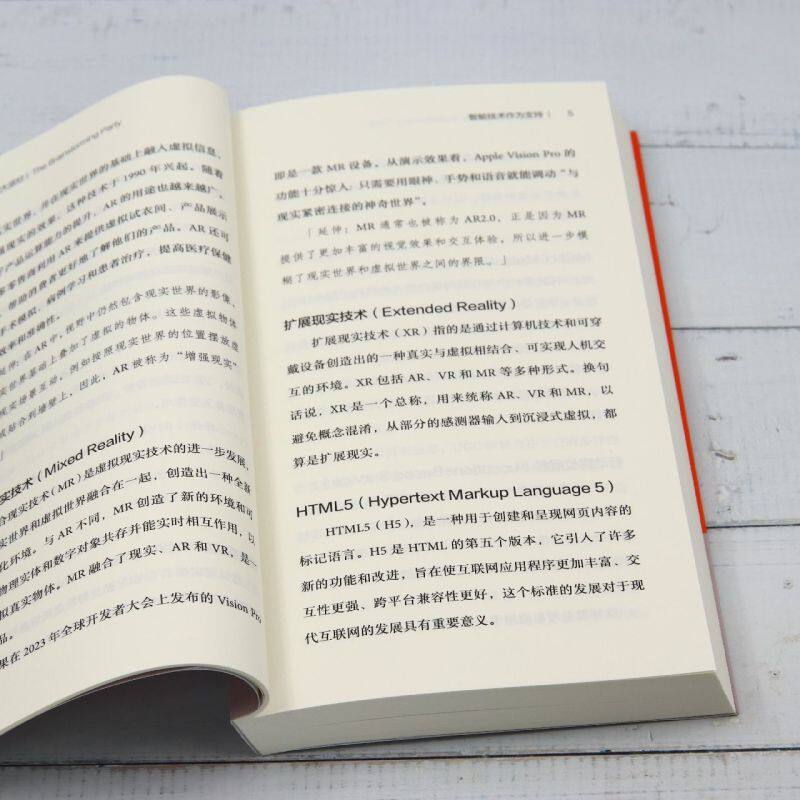 大源如 | The Brainstorming Party
实世界，并在现实世界的基础上融入虚拟信息，
强现实的效果，这种技术于 1990 年兴起。随着
产品运算能力的提升，AR 的用途也越来越广。
零售商利用 AR 来提供虚拟试衣间、产品展示
帮助消费者更好地了解他们的产品。AR 还可
手术模拟、病例学习和患者治疗，提高医疗保健
效率和准确性。
延伸：在 AR 中，视野中仍然包含现实世界的影像，
实世界基础上叠加了虚拟的物体。这些虚拟物体
现实场景互动，例如按照现实世界的位置摆放虚
或贴合到墙壁上，因此，AR 被称为“增强现实”
」
实技术（Mixed Reality）
合现实技术（MR）是虚拟现实技术的进一步发展，
实世界和虚拟世界融合在一起，创造出一种全新
化环境。与 AR 不同，MR 创造了新的环境和可
物理实体和数字对象共存并能实时相互作用，以
拟真实物体。MR 融合了现实、AR 和 VR，是一
品。
果在 2023 年全球开发者大会上发布的 Vision Pro
智能技术作为支持 | 5
即是一款 MR 设备。从演示效果看，Apple Vision Pro 的
功能十分惊人：只需要用眼神、手势和语音就能调动“与
现实紧密连接的神奇世界”。
「延伸：MR 通常也被称为 AR2.0，正是因为 MR
提供了更加丰富的视觉效果和交互体验，所以进一步模
糊了现实世界和虚拟世界之间的界限。」
扩展现实技术（Extended Reality）
扩展现实技术（XR）指的是通过计算机技术和可穿
戴设备创造出的一种真实与虚拟相结合、可实现人机交
互的环境。XR 包括 AR、VR 和 MR 等多种形式。换句
话说，XR 是一个总称，用来统称 AR、VR 和 MR，以
避免概念混淆，从部分的感测器输入到沉浸式虚拟，都
算是扩展现实。
HTML5（Hypertext Markup Language 5）
HTML5（H5），是一种用于创建和呈现网页内容的
标记语言。H5 是 HTML 的第五个版本，它引入了许多
新的功能和改进，旨在使互联网应用程序更加丰富、交
互性更强、跨平台兼容性更好，这个标准的发展对于现
代互联网的发展具有重要意义。